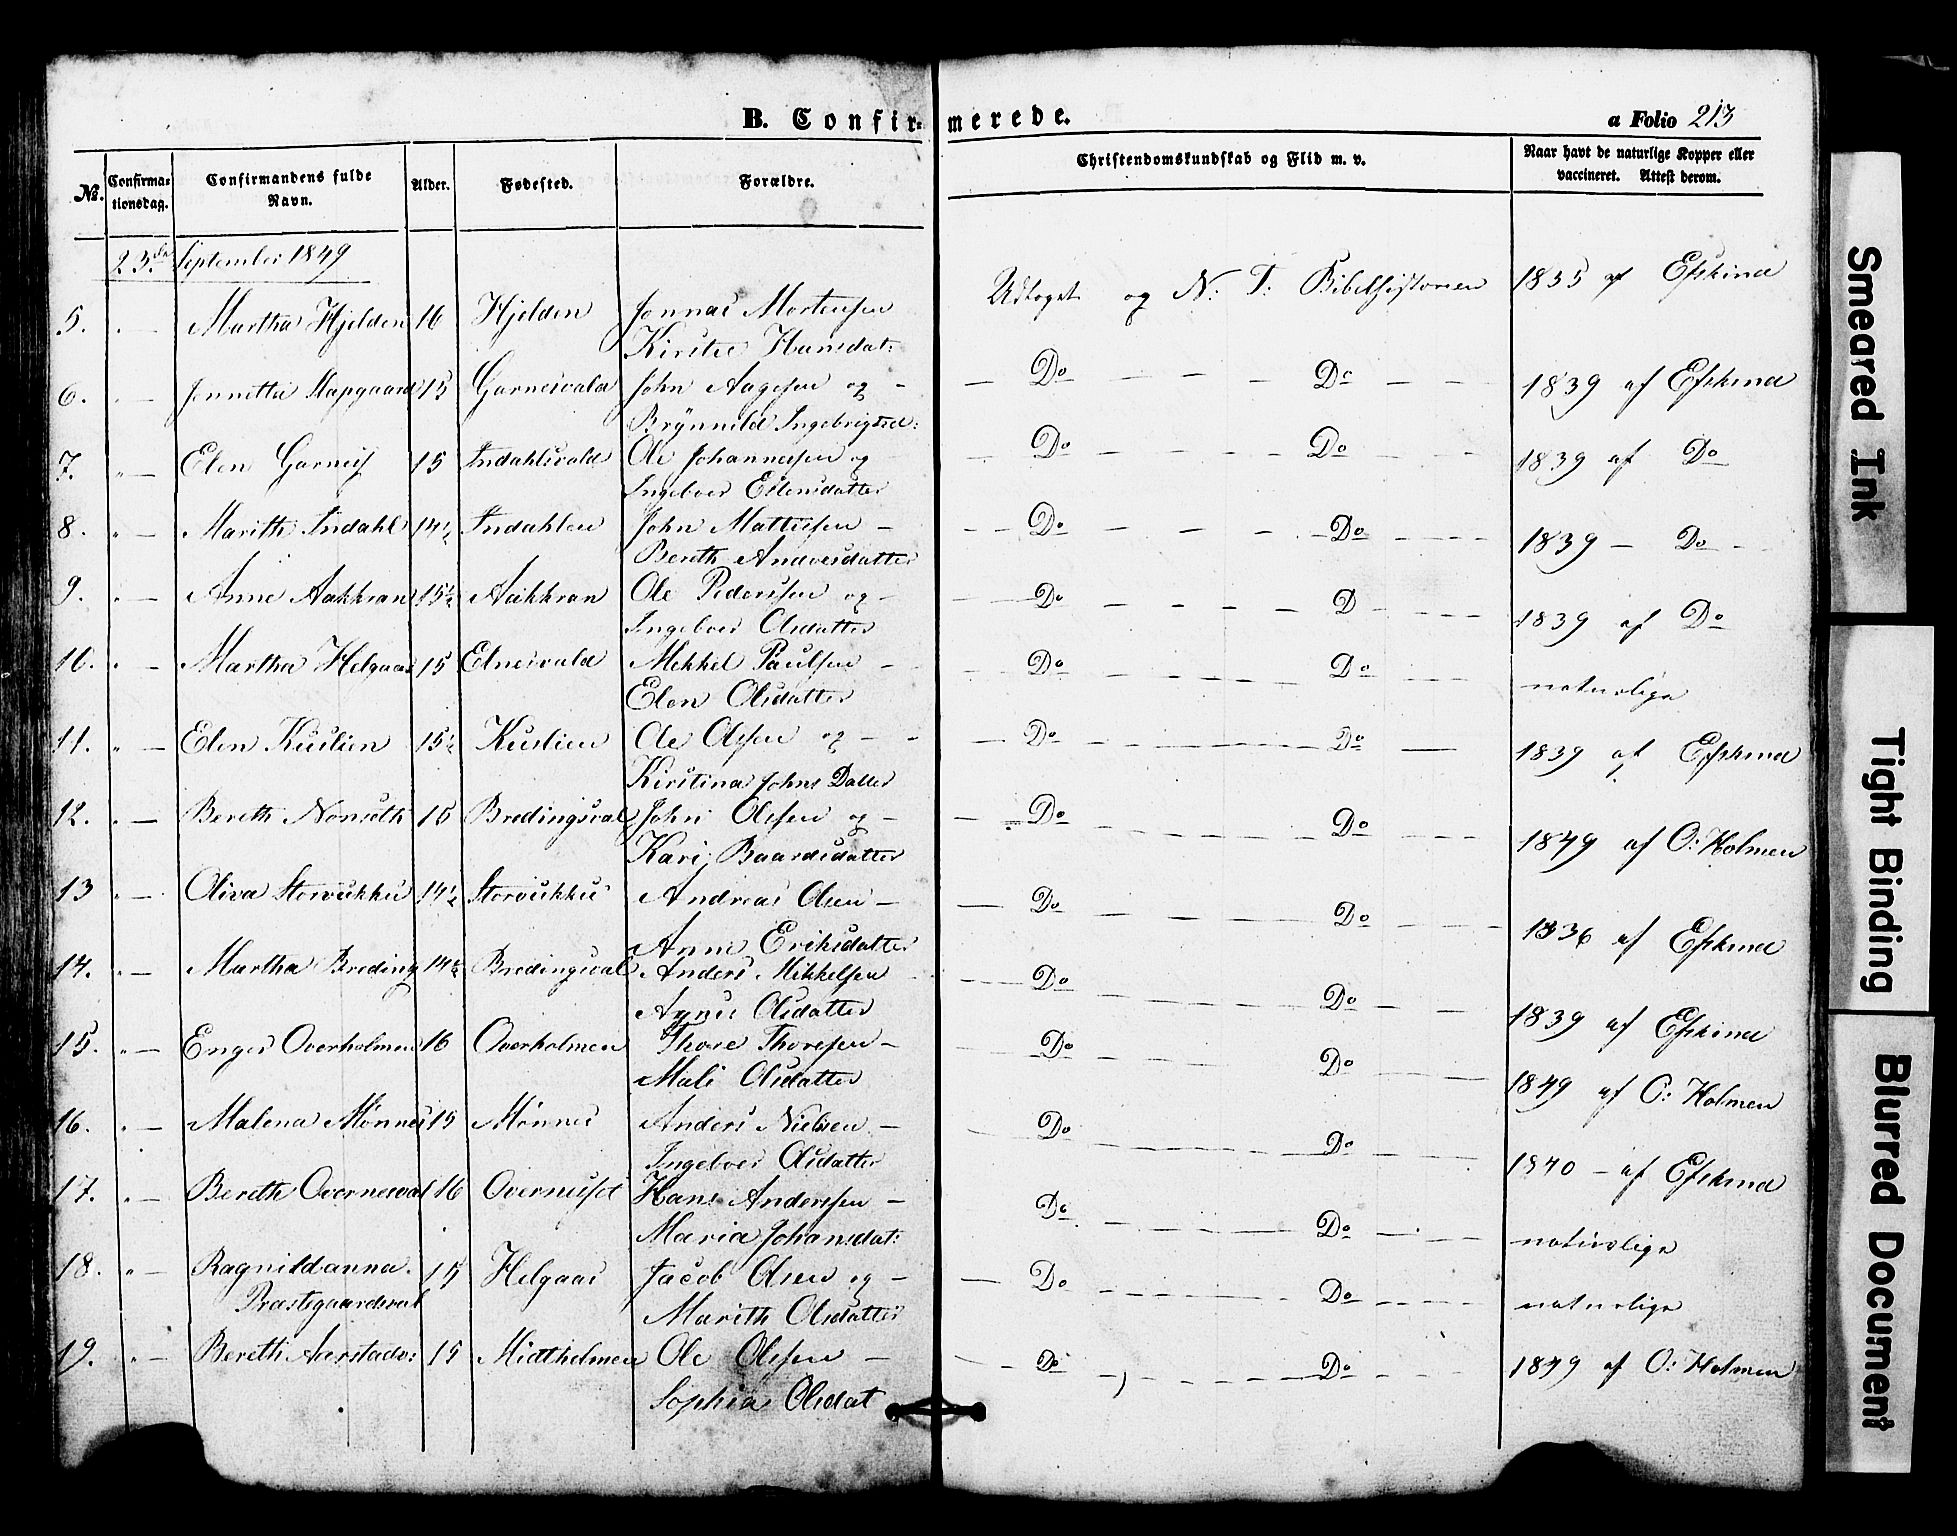 B. Confir=merede.
a Folio 213
№.
Confirma=
tionsdag.
Confirmandens fulde
Navn.
Alder.
Fødested.
Forældre.
Christendomskundskab og Flid m. v.
Naar havt de naturlige Kopper eller
vaccineret. Attest derom.
23de September 1849
5. " — Martha Hjelden 16 Hjelden Jonnas Mortensen Udtoget og N: T: Bibelhistorien 1835 af Eskind
Kirstie Hansdat:
6. " — Jennetta 15 Garnesvald John Aagesen og — Do Do 1839 af Eskind
Brynnild
7. " — Elen Garnes 15 Indahlsvald Ole Johannesen og Do Do 1839 af Do
Ingeboer Ellensdatter
8. " — Marith Indahl 14½ Indahlen John Mattisen — Do Do 1839 — Do
Bereth Andersdatter
9. " — Anne Aakkran 15½ Aakkran Ole Pedersen og — Do D 1839 af Do
Ingeboer Olsdatter
10. " — Martha Helgaas 15 Elnesvald Mekkel Paulsen — Do Do naturlige
Elen Olsdatter
11. " — Elen Kuslien 15½ Kuslien Ole Olsen og — Do Do 1839 af Eskind
Kirstina Johns Datter
12. " — Bereth 15 Bredingsval John Olsen og — Do Do 1849 af O: Holmen
Kari Baardsdatter
13 " — Oliva Storvukku 14½ Storvukku Andreas Olsen — Do Do 1836 af Eskind
Anne Eriksdatter
14. " — Martha Breding 14½ Bredingsval Anders Mikkelsen Do Do 1839 af Eskind
Agnes Olsdatter
15. " — Enger Overholmen 16 Overholmen Thore Thoresen — Do Do 1849 af O: Holmen
Mali Olsdatter
16. " — Malena Mønnes 15 Mønnes Anders Nielsen — Do Do 1840 — af Eskind
Ingeboer Olsdatter
17. " — Bereth Overnesval 16 Hans Anderssen — Do Do naturlige
Maria Johansdat:
18. " — Ragnildanna 15 Helgaas Jacob Olsen og — Do Do naturlige
Præstegaardsval Marith Olsdatter
19. " — Bereth Aarstadv: 15 Midtholmen Ole Olssen — Do Do 1849 af O: Holmen
Sophia Olsdat
Smeared Ink
Tight Binding
Blurred Document